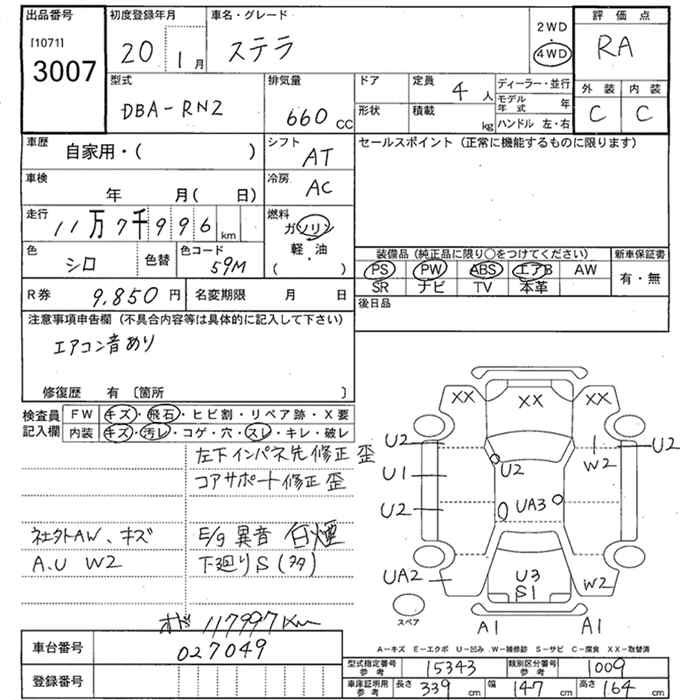 出品番号 初度登録年月 車名・グレード 2WD 評価点
[1071] 20 1月 ステラ ・ RA
3007 4WD
型式 排気量 ドア 定員 4人 ディーラー・並行 外装 内装
DBA-RN2 660cc 形状 積載 kg モデル年式 年 C C
ハンドル 左・右
車歴 自家用・( ) シフト AT セールスポイント (正常に機能するものに限ります)
車検 年 月( 日) 冷房 AC
走行 11万7千996km 燃料 ガソリン
軽・油
( )
色 シロ 色替 色コード 59M 装備品 (純正品に限り○をつけてください) 新車保証書
PS PW ABS エアB AW 有・無
SR ナビ TV 本革
R券 9,850円 名変期限 月 日 後日品
注意事項申告欄 (不具合内容等は具体的に記入して下さい)
エアコン音あり
修復歴 有 〔箇所 〕
検査員 FW キズ・飛石・ヒビ割・リペア跡・X要
記入欄 内装 キズ・汚レ・コゲ・穴・スレ・キレ・破レ
左下インパネ先修正歪
コアサポート修正歪
社外AW、キズ E/g異音 白煙
A.U W2 下廻りS(多)
オド 117997Km
XX XX XX
U2 U2
U2 W2
U1
U2 UA3
UA2 U3 W2
S1
スペア A1 A1
A-キズ E-エクボ U-凹み W-補修跡 S-サビ C-腐食 XX-取替済
車台番号 027049
登録番号
型式指定番号 参考 15343 類別区分番号 参考 1009
車庫証明用 参考 長さ 339cm 幅 147cm 高さ 164cm